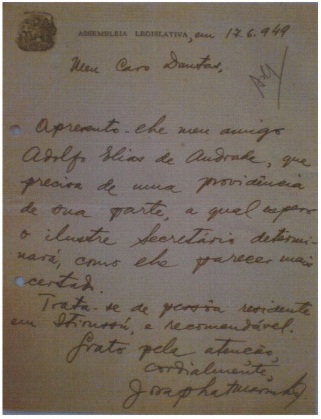 ASSEMBLEIA LEGISLATIVA, em 17.6.949
Meu Caro Dantas,
Apresento-lhe meu amigo
Adolfo Elias de Andrade, que
precisa de uma providência
de sua parte, a qual espero
o ilustre Secretário determi-
nará, como lhe parecer mais
acertado.
Trata-se de pessôa residente
em Itirussú, e recomendável.
Grato pela atenção,
cordialmente,
Josaphat Marinho